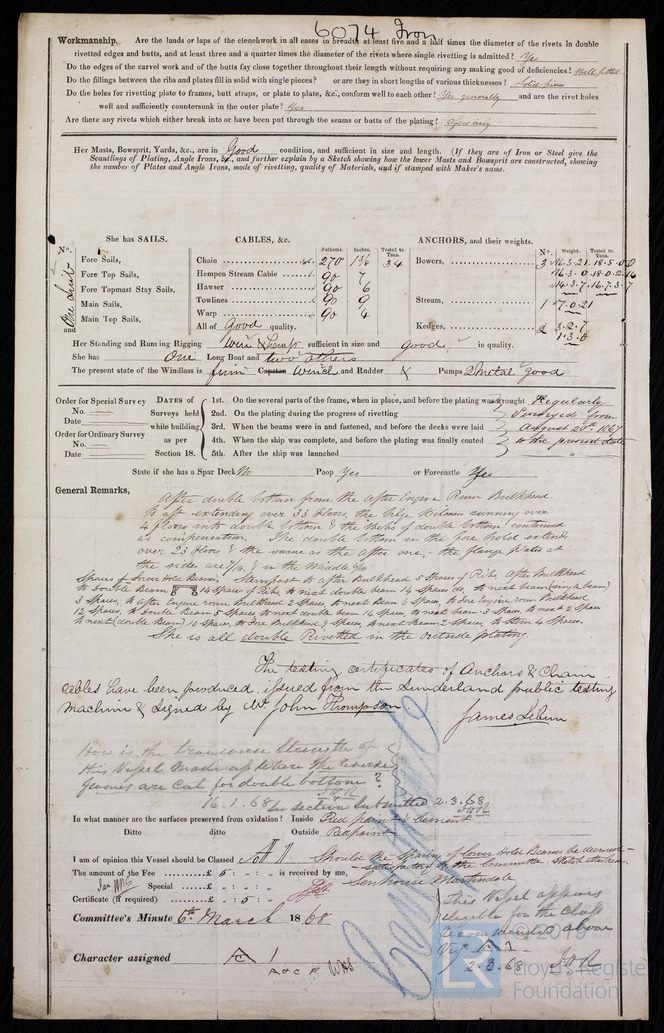 6074 Iron
Workmanship. Are the lands or laps of the clenchwork in all cases in breadth at least five and a half times the diameter of the rivets in double
rivetted edges and butts, and at least three and a quarter times the diameter of the rivets where single rivetting is admitted? Yes
Do the edges of the carvel work and of the butts fay close together throughout their length without requiring any making good of deficiencies? Well fitted
Do the fillings between the ribs and plates fill in solid with single pieces? or are they in short lengths of various thicknesses? Solid pieces
Do the holes for rivetting plate to frames, butt straps, or plate to plate, &c., conform well to each other? Yes generally and are the rivet holes
well and sufficiently countersunk in the outer plate? Yes
Are there any rivets which either break into or have been put through the seams or butts of the plating?
Her Masts, Bowsprit, Yards, &c., are in Good condition, and sufficient in size and length. (If they are of Iron or Steel give the
Scantlings of Plating, Angle Irons, &c., and further explain by a Sketch showing how the lower Masts and Bowsprit are constructed, showing
the number of Plates and Angle Irons, mode of rivetting, quality of Materials, and if stamped with Maker's name.
She has SAILS. CABLES, &c. ANCHORS, and their weights.
N°. Fathoms. Inches. Tested to Tons. N°. Weight. Tested to Tons.
One Suit
Fore Sails, Chain 270 1 5/16 34 Bowers, 3 16.3.21 18.5.0.0
Fore Top Sails, Hempen Stream Cable 90 7 16.3.0 18.0.2.14
Fore Topmast Stay Sails, Hawser 90 6 14.3.7 16.7.3.7
Main Sails, Towlines 90 9 Stream, 1 7.0.21
Warp 90 4
and Main Top Sails, All of Good quality. Kedges, 2 3.2.7
1.3.0
Her Standing and Running Rigging Wire & Hemp sufficient in size and good in quality.
She has One Long Boat and two others
The present state of the Windlass is firm Capstan Winch and Rudder Pumps 2 Metal good
Order for Special Survey No. Date
Order for Ordinary Survey No. Date
DATES of Surveys held while building as per Section 18.
1st. On the several parts of the frame, when in place, and before the plating was wrought Regularly
2nd. On the plating during the progress of rivetting Surveyed from
3rd. When the beams were in and fastened, and before the decks were laid August 20th 1867
4th. When the ship was complete, and before the plating was finally coated to the present date
5th. After the ship was launched "
State if she has a Spar Deck No Poop Yes or Forecastle Yes
General Remarks,
After double bottom from the after Engine Room Bulkhead
to aft extending over 33 Floors, the Bilge Keelsons running over
4 floors into double bottom & the Webs of double bottom continued
as compensation. The double bottom in the fore hold extends
over 23 Floors & the same as the after one, the flange plates at
the side are 7/16 & in the Middle 6/16
Spaces of Lower Hold Beams; Sternpost to after Bulkhead 5 Spaces of Ribs, After Bulkhead
to Double Beam 14 Spaces of Ribs, to next double beam 14 Spaces do, to next beam (single beam)
3 Spaces, to After Engine room Bulkhead 2 Spaces, to next beam 6 Spaces, to Fore Engine room Bulkhead
12 Spaces, to Double Beam 5 Spaces, to next double beam 14 Spaces, to next beam 3 Spaces, to next 2 Spaces
to next (double Beam) 10 Spaces, to Fore Bulkhead 9 Spaces, to next beam 2 Spaces, to Stem 4 Spaces.
She is all double Rivetted in the outside plating.
The testing certificates of Anchors & Chain
cables have been produced issued from the Sunderland public testing
Machine & signed by Mr John Thompson
How is the transverse Strength of
this Vessel made up where the reverse
frames are cut for double bottom?
16.1.68 submitted 2.3.68
In what manner are the surfaces preserved from oxidation? Inside Red paint & Cement
Ditto ditto Outside Red paint
I am of opinion this Vessel should be Classed A 1 Should the spacing of lower Hold Beams be deemed
satisfactory to the Committee. Sketch attached
The amount of the Fee £ 5 : " : " is received by me, Senhouse Martindale
Special £ " : " : "
Certificate (if required) £ 5 : " : "
This Vessel appears
eligible for the Class
recommended above
Viz A 1
2.3.68
Committee's Minute 6th March 1868
Character assigned A 1
A & C P
LR
Lloyd's Register
Foundation